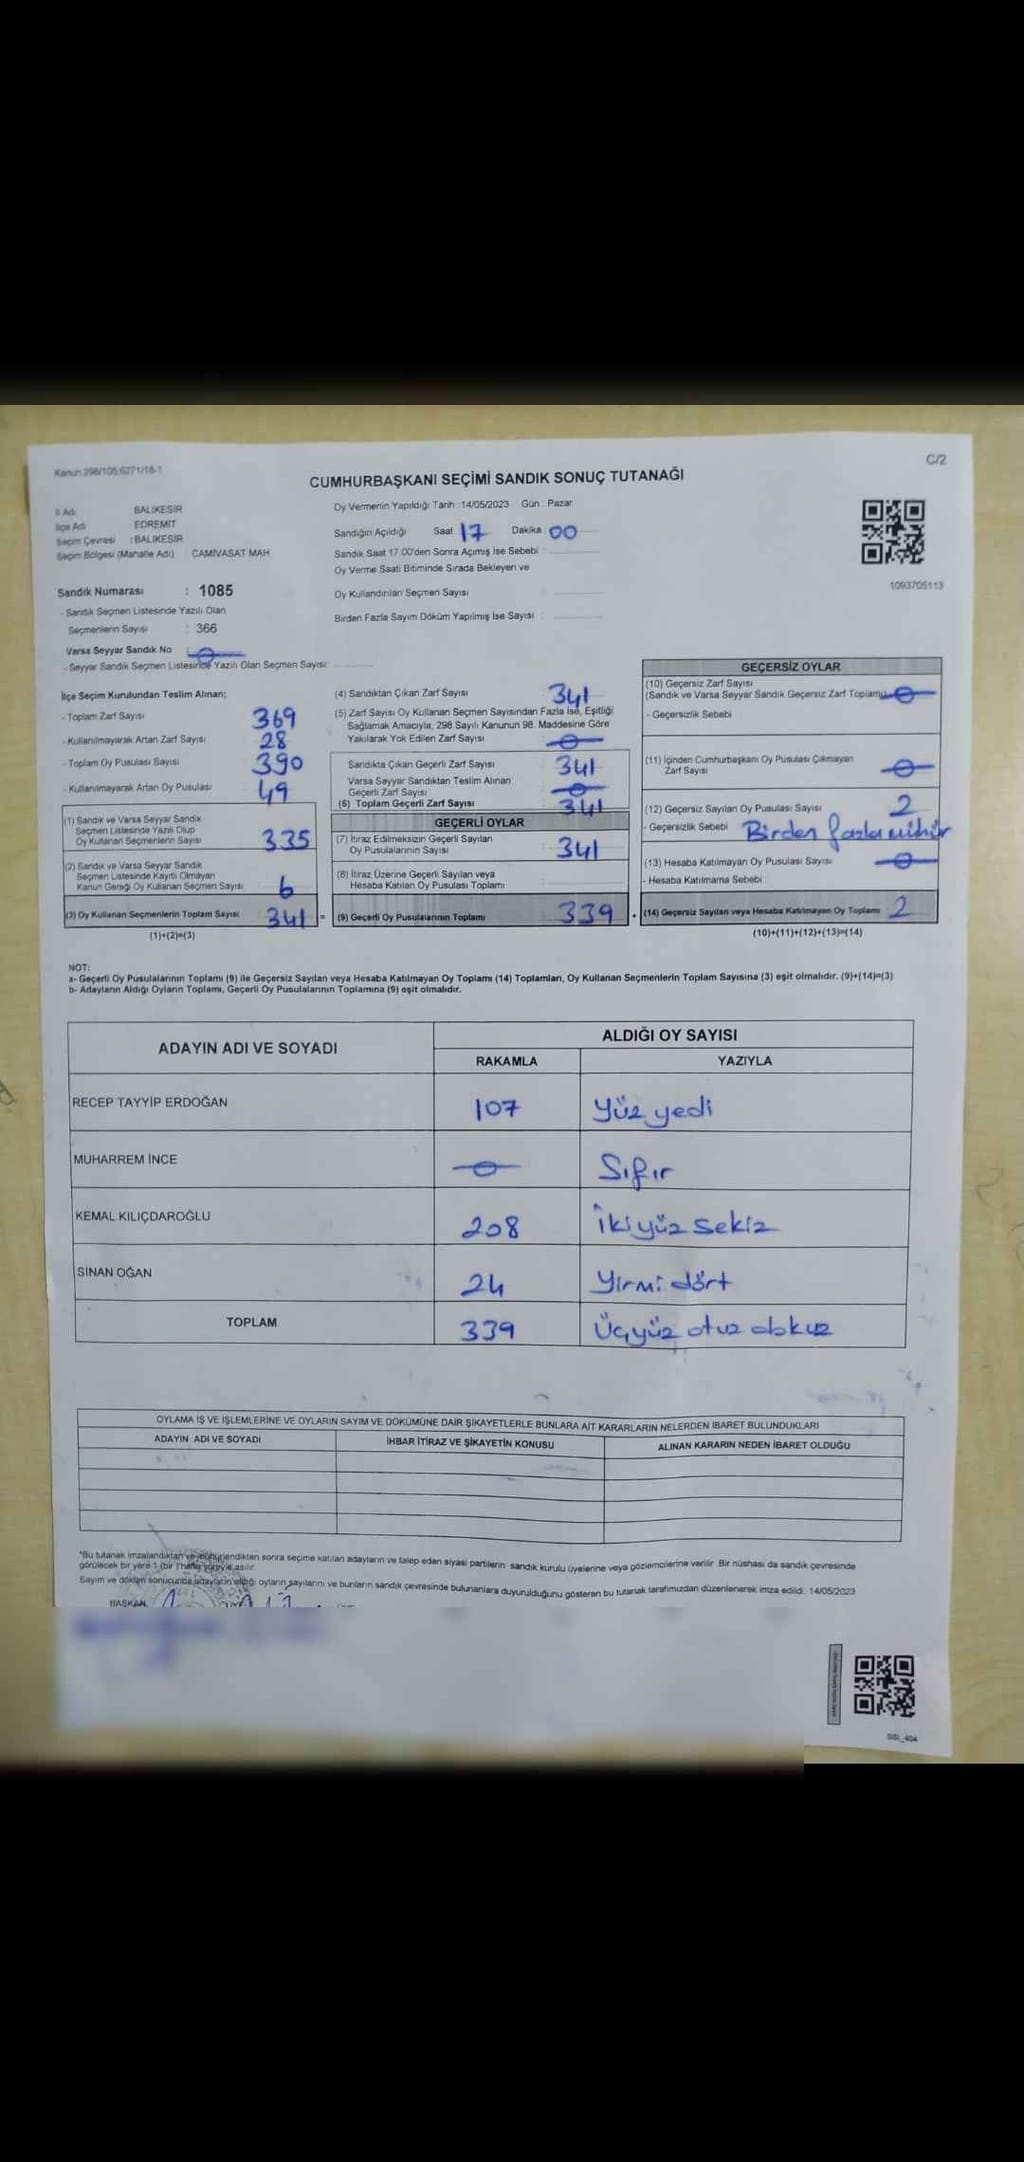 Kanun 298/105;6271/18-1
C/2
CUMHURBAŞKANI SEÇİMİ SANDIK SONUÇ TUTANAĞI
İl Adı BALIKESİR
İlçe Adı EDREMİT
Seçim Çevresi : BALIKESİR
Seçim Bölgesi (Mahalle Adı) CAMİVASAT MAH.
Oy Vermenin Yapıldığı Tarih : 14/05/2023 Gün : Pazar
Sandığın Açıldığı Saat 17 Dakika 00
Sandık Saat 17:00'den Sonra Açımış İse Sebebi :
Oy Verme Saati Bitiminde Sırada Bekleyen ve
Oy Kullandırılan Seçmen Sayısı
Birden Fazla Sayım Döküm Yapılmış İse Sayısı :
1093705113
Sandık Numarası : 1085
- Sandık Seçmen Listesinde Yazılı Olan
Seçmenlerin Sayısı : 366
Varsa Seyyar Sandık No : 0
- Seyyar Sandık Seçmen Listesinde Yazılı Olan Seçmen Sayısı:
İlçe Seçim Kurulundan Teslim Alınan;
- Toplam Zarf Sayısı 369
- Kullanılmayarak Artan Zarf Sayısı 28
- Toplam Oy Pusulası Sayısı 390
- Kullanılmayarak Artan Oy Pusulası 49
(1) Sandık ve Varsa Seyyar Sandık
Seçmen Listesinde Yazılı Olup
Oy Kullanan Seçmenlerin Sayısı 335
(2) Sandık ve Varsa Seyyar Sandık
Seçmen Listesinde Kayıtlı Olmayan
Kanun Gereği Oy Kullanan Seçmen Sayısı 6
(3) Oy Kullanan Seçmenlerin Toplam Sayısı 341 =
(1)+(2)=(3)
(4) Sandıktan Çıkan Zarf Sayısı 341
(5) Zarf Sayısı Oy Kullanan Seçmen Sayısından Fazla İse, Eşitliği
Sağlamak Amacıyla; 298 Sayılı Kanunun 98. Maddesine Göre
Yakılarak Yok Edilen Zarf Sayısı 0
Sandıkta Çıkan Geçerli Zarf Sayısı 341
Varsa Seyyar Sandıktan Teslim Alınan
Geçerli Zarf Sayısı 0
(6) Toplam Geçerli Zarf Sayısı 341
GEÇERLİ OYLAR
(7) İtiraz Edilmeksizin Geçerli Sayılan
Oy Pusulalarının Sayısı 341
(8) İtiraz Üzerine Geçerli Sayılan veya
Hesaba Katılan Oy Pusulası Toplamı
(9) Geçerli Oy Pusulalarının Toplamı 339 +
GEÇERSİZ OYLAR
(10) Geçersiz Zarf Sayısı
(Sandık ve Varsa Seyyar Sandık Geçersiz Zarf Toplamı) 0
- Geçersizlik Sebebi
(11) İçinden Cumhurbaşkanı Oy Pusulası Çıkmayan
Zarf Sayısı 0
(12) Geçersiz Sayılan Oy Pusulası Sayısı 2
- Geçersizlik Sebebi Birden fazla mühür
(13) Hesaba Katılmayan Oy Pusulası Sayısı 0
- Hesaba Katılmama Sebebi
(14) Geçersiz Sayılan veya Hesaba Katılmayan Oy Toplamı 2
(10)+(11)+(12)+(13)=(14)
NOT:
a- Geçerli Oy Pusulalarının Toplamı (9) ile Geçersiz Sayılan veya Hesaba Katılmayan Oy Toplamı (14) Toplamları, Oy Kullanan Seçmenlerin Toplam Sayısına (3) eşit olmalıdır. (9)+(14)=(3)
b- Adayların Aldığı Oyların Toplamı, Geçerli Oy Pusulalarının Toplamına (9) eşit olmalıdır.
ADAYIN ADI VE SOYADI
ALDIĞI OY SAYISI
RAKAMLA YAZIYLA
RECEP TAYYİP ERDOĞAN 107 Yüz yedi
MUHARREM İNCE 0 Sıfır
KEMAL KILIÇDAROĞLU 208 İkiyüz sekiz
SİNAN OĞAN 24 Yirmi dört
TOPLAM 339 Üçyüz otuz dokuz
OYLAMA İŞ VE İŞLEMLERİNE VE OYLARIN SAYIM VE DÖKÜMÜNE DAİR ŞİKAYETLERLE BUNLARA AİT KARARLARIN NELERDEN İBARET BULUNDUKLARI
ADAYIN ADI VE SOYADI İHBAR İTİRAZ VE ŞİKAYETİN KONUSU ALINAN KARARIN NEDEN İBARET OLDUĞU
*Bu tutanak imzalandıktan ve mühürlendikten sonra seçime katılan adayların ve talep eden siyasi partilerin sandık kurulu üyelerine veya gözlemcilerine verilir. Bir nüshası da sandık çevresinde
görülecek bir yere 1 (bir) hafta süreyle asılır.
Sayım ve döküm sonucunda adayların aldığı oyların sayılarını ve bunların sandık çevresinde bulunanlara duyurulduğunu gösteren bu tutanak tarafımızdan düzenlenerek imza edildi. 14/05/2023
BAŞKAN